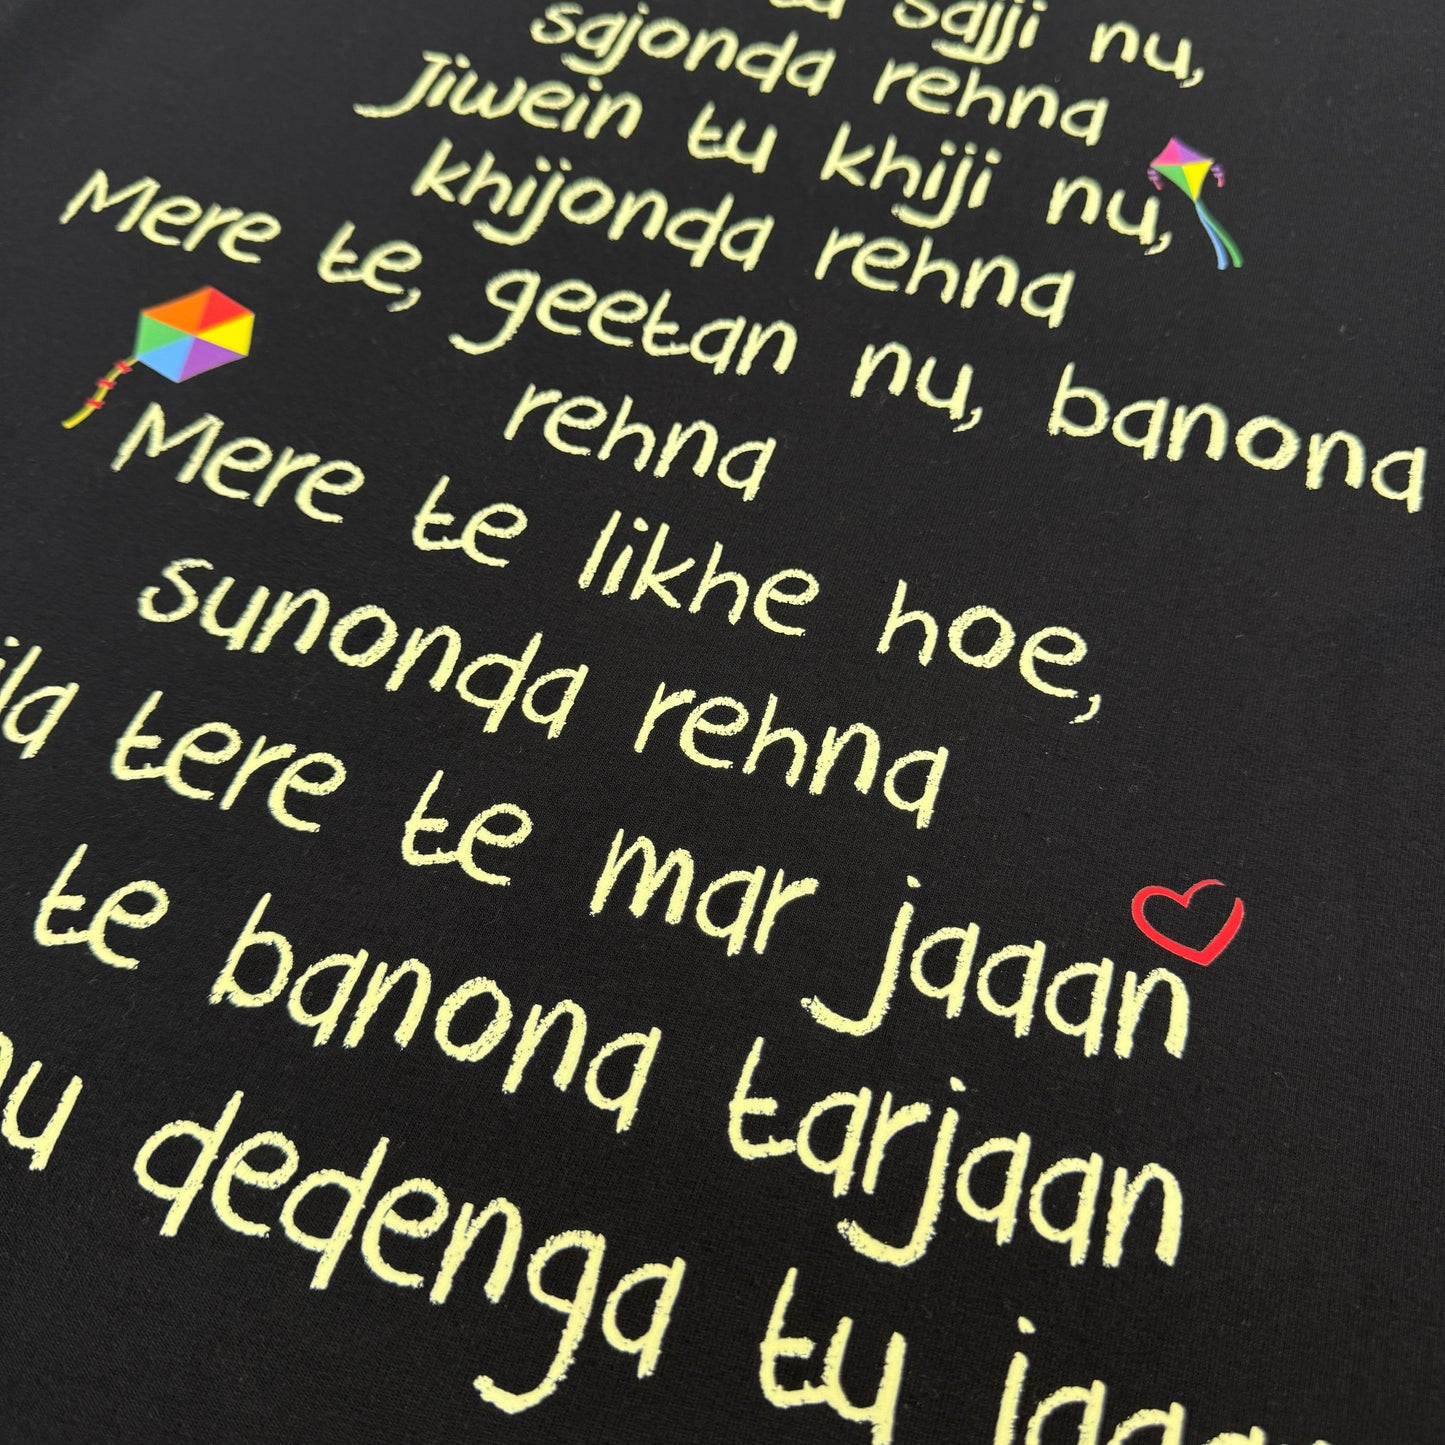 sajji nu,
sajonda rehna
Jiwein tu khiji nu,
khijonda rehna
Mere te, geetan nu, banona
rehna
Mere te likhe hoe,
sunonda rehna
tere te mar jaaan
te banona tarjaan
dedenga tu